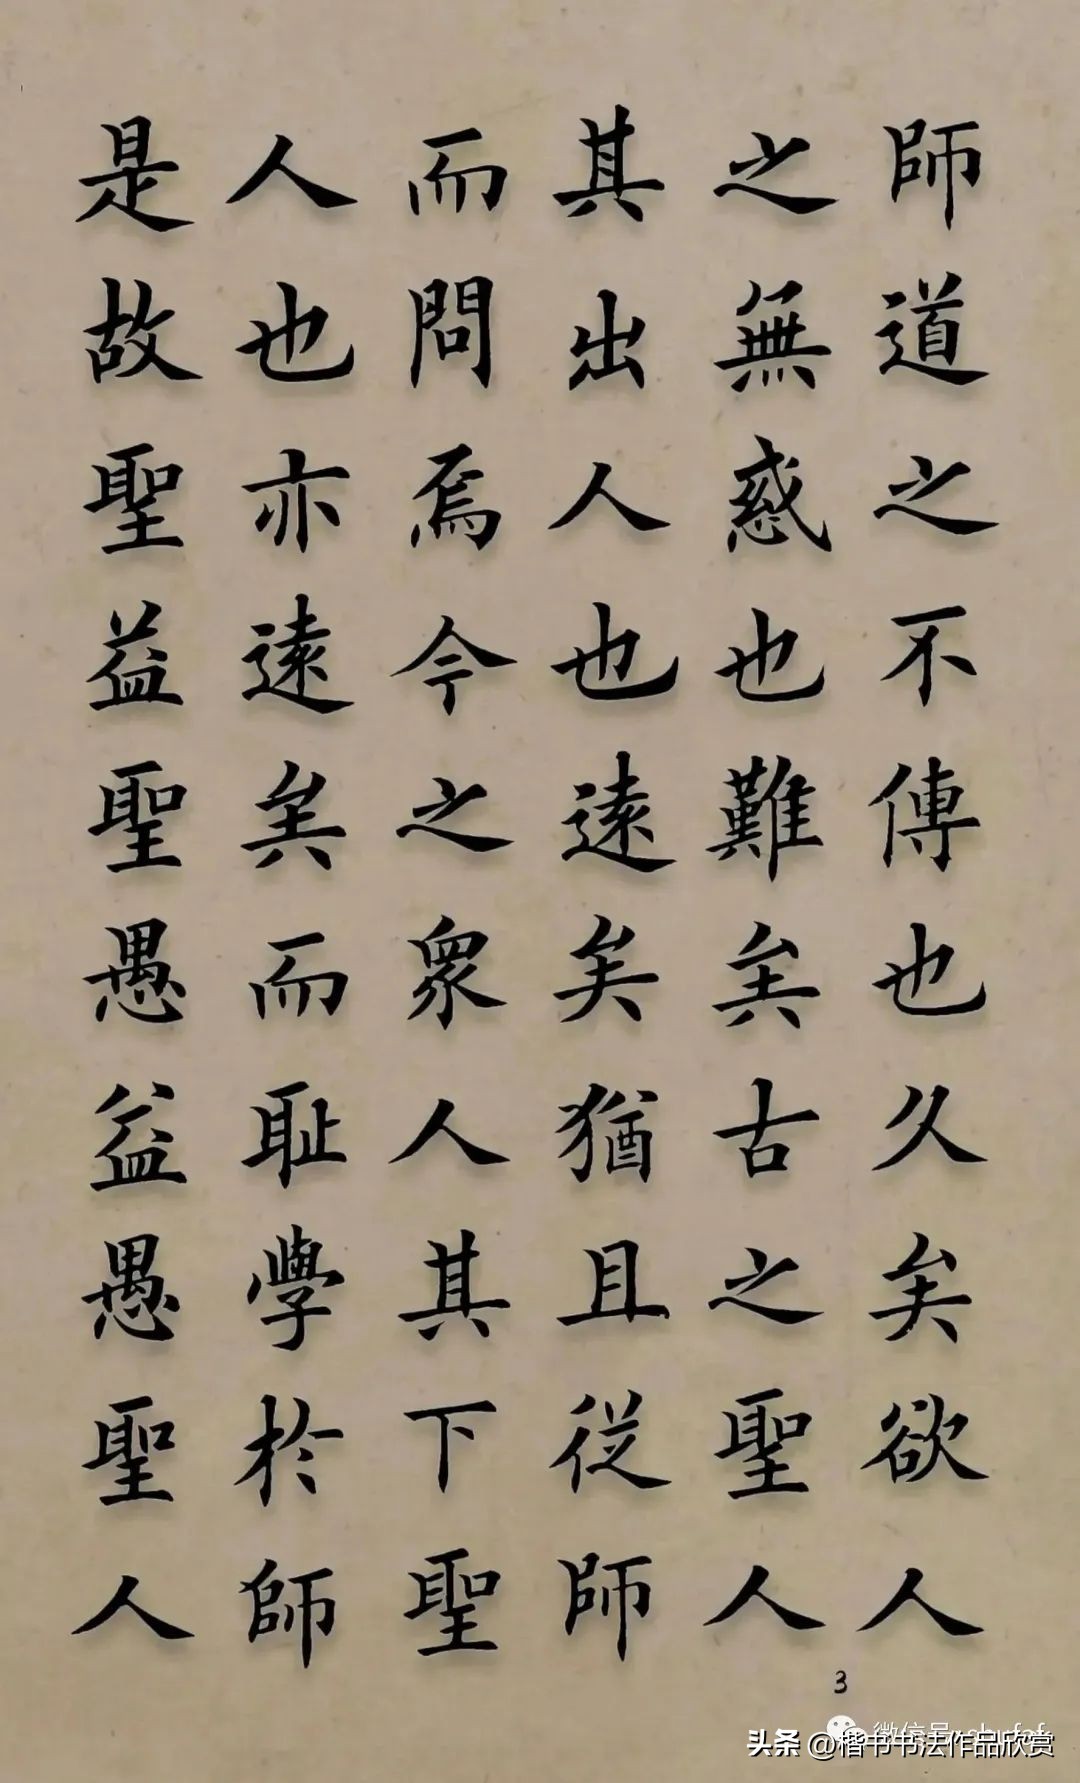 師道之不傳也久矣欲人
之無惑也難矣古之聖人
其出人也遠矣猶且從師
而問焉今之衆人其下聖
人也亦遠矣而恥學於師
是故聖益聖愚益愚聖人
3
头条 @楷书书法作品欣赏